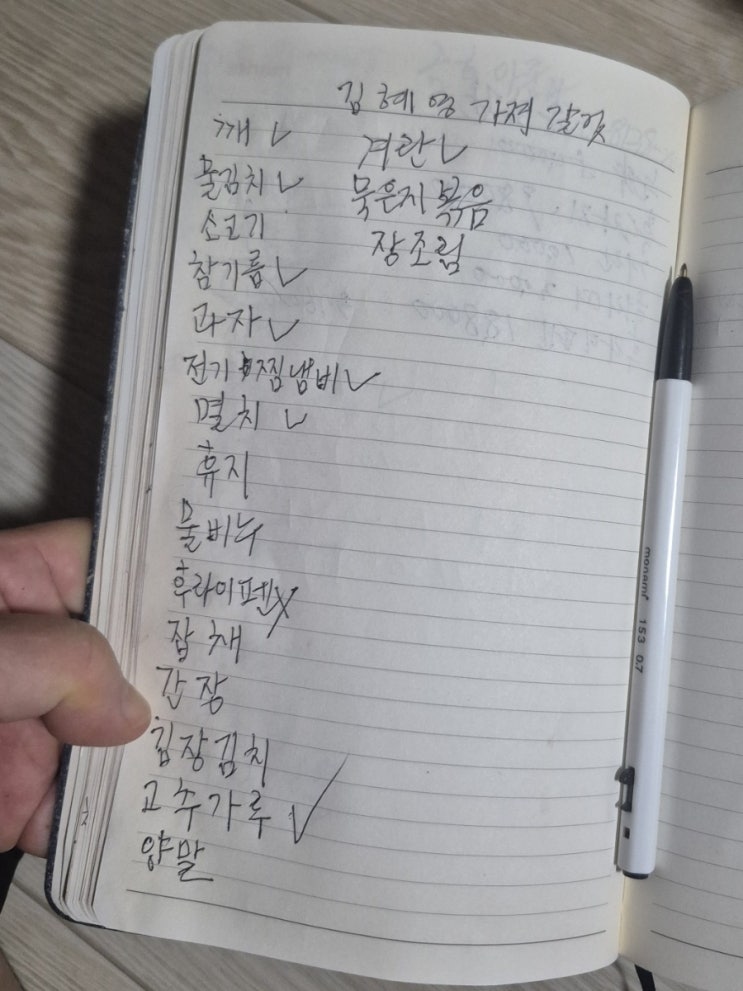 김혜영 가져갈것
깨 ✓
물김치 ✓
소고기
참기름 ✓
과자 ✓
전기 찜냄비 ✓
멸치 ✓
휴지
물비누
후라이펜 X
잡채
간장
김장김치
고추가루 ✓
양말
계란 ✓
묵은지볶음
장조림
monami 153 0.7